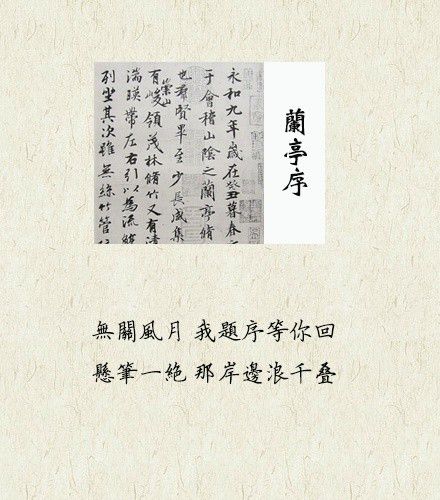 蘭亭序
永和九年歲在癸丑暮春
于會稽山陰之蘭亭脩
也羣賢畢至少長咸集
有崇山峻領茂林脩竹又有清
湍暎帶左右引以為流
列坐其次雖無絲竹管
無關風月 我題序等你回
懸筆一絕 那岸邊浪千叠